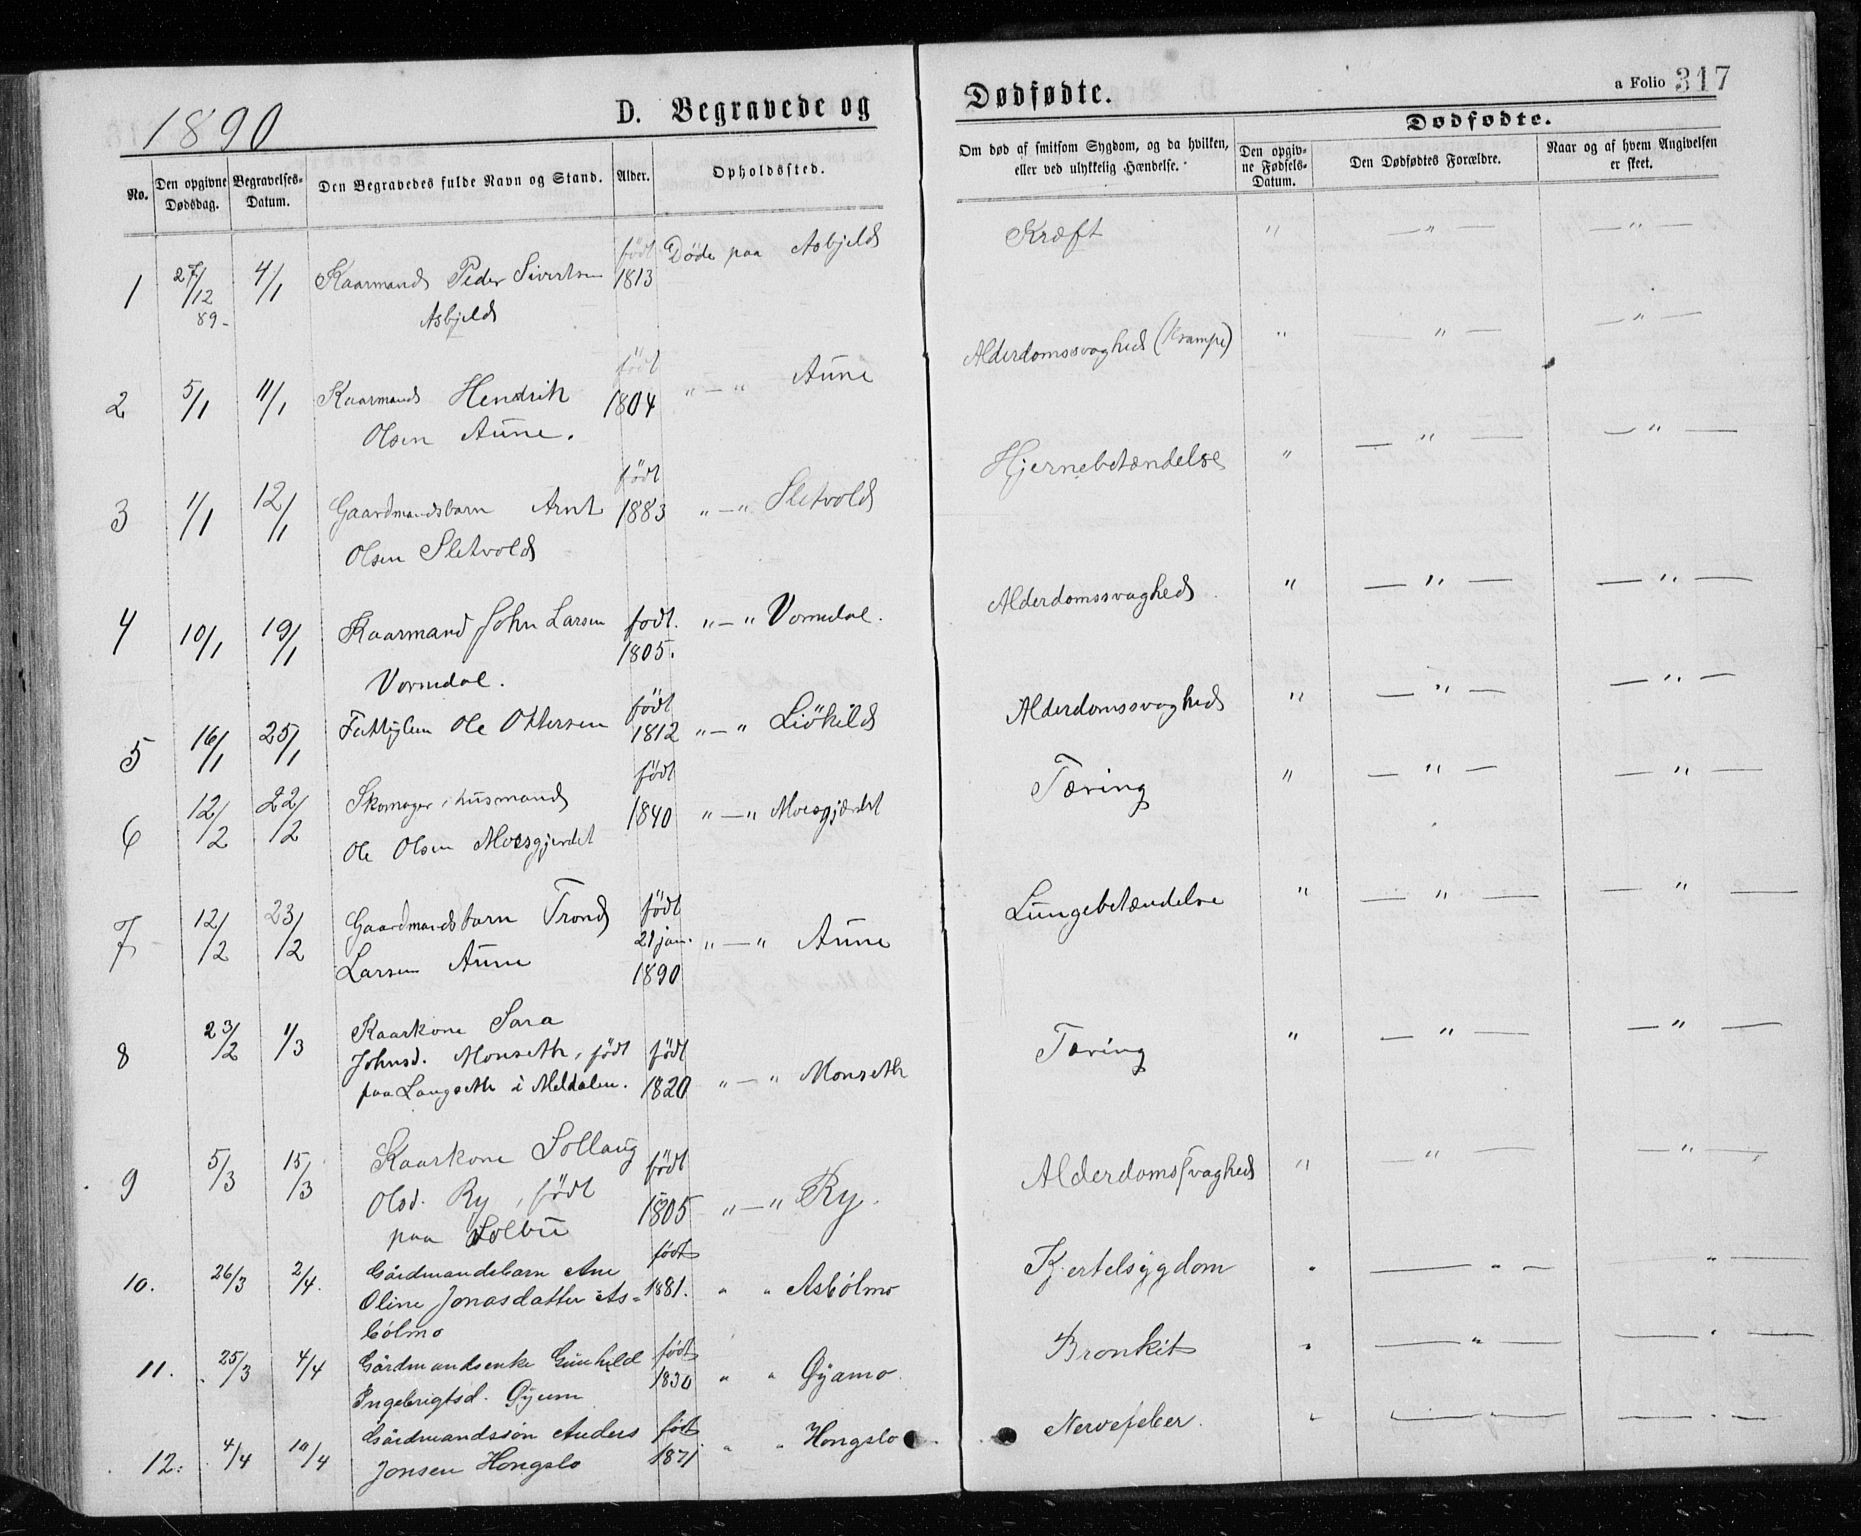 1890
D. Begravede og
Dødfødte.
a Folio 317
No.
Den opgivne Dødsdag.
Begravelses-Datum.
Den Begravedes fulde Navn og Stand.
Alder.
Opholdssted.
Om død af smitsom Sygdom, og da hvilken, eller ved ulykkelig Hændelse.
Dødfødte.
Den opgivne Fødsels-Datum.
Den Dødfødtes Forældre.
Naar og af hvem Angivelsen er skeet.
1 27/12 89- 4/1 Kaarmand Peder Sivertsen født 1813 Døde paa Asbjeld Kræft " — " — — " —
Asbjeld
2 5/1 11/1 Kaarmand Hendrik født 1804 " — " Aune Alderdomssvaghed (Krampe) " — " — — " —
Olsen Aune.
3 1/1 12/1 Gaardmandsbarn Arnt født 1883 " — " Sletvold Hjernebetændelse " — " — — " —
Olsen Sletvold
4 10/1 19/1 Kaarmand John Larsen født. 1805. " — " Vormdal. Alderdomssvaghed " — " — — " —
Vormdal.
5 16/1 25/1 Fattiglem Ole Ottersen født 1812 " — " Liøkild Alderdomssvaghed " — " — — " —
6 12/2 22/2 Skomager, husmand født 1840 " — " Moesgjærdet Tæring " — " — — " —
Ole Olsen Moesgjerdet
7 12/2 23/2 Gaardmandsbarn Trond født 21 jan. 1890 " — " Aune Lungebetændelse " — " — — " —
Larsen Aune
8 23/2 1/3 Kaarkone Sara født 1820 " — " Monseth Tæring " — " — — " —
Johnsd. Monseth, født
paa Langseth i Meldalen.
9 5/3 15/3 Kaarkone Sollaug født 1805 " — " Ry. Alderdomssvaghed " — " — — " —
Olsd. Ry, født
paa Solbu
10. 26/3 2/4. Gårdmandsbarn Ane født 1881. " " Asbølmo Kjertelsygdom " — " — " —
Oline Jonasdatter As-
bølmo
11. 25/3 4/4 Gårdmandsenke Gunhild født 1830 " " Øyamo. Bronkit " — " — — " —
Ingebrigtsd. Øyum
12. 4/4 10/4 Gårdmandssøn Anders født 1871 " " Hongslo Nervefeber. " — " — — " —
Jonsen Hongslo